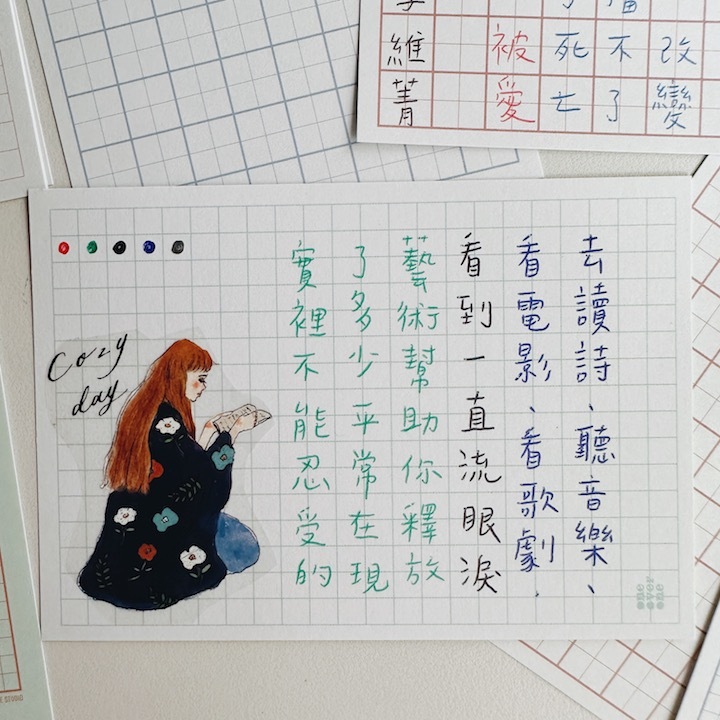 去讀詩、聽音樂、
看電影、看歌劇、
看到一直流眼淚
藝術幫助你釋放
了多少平常在現
實裡不能忍受的
Cozy
day
one
over
one
改變
不了
死亡
被愛
維菁
STUDIO